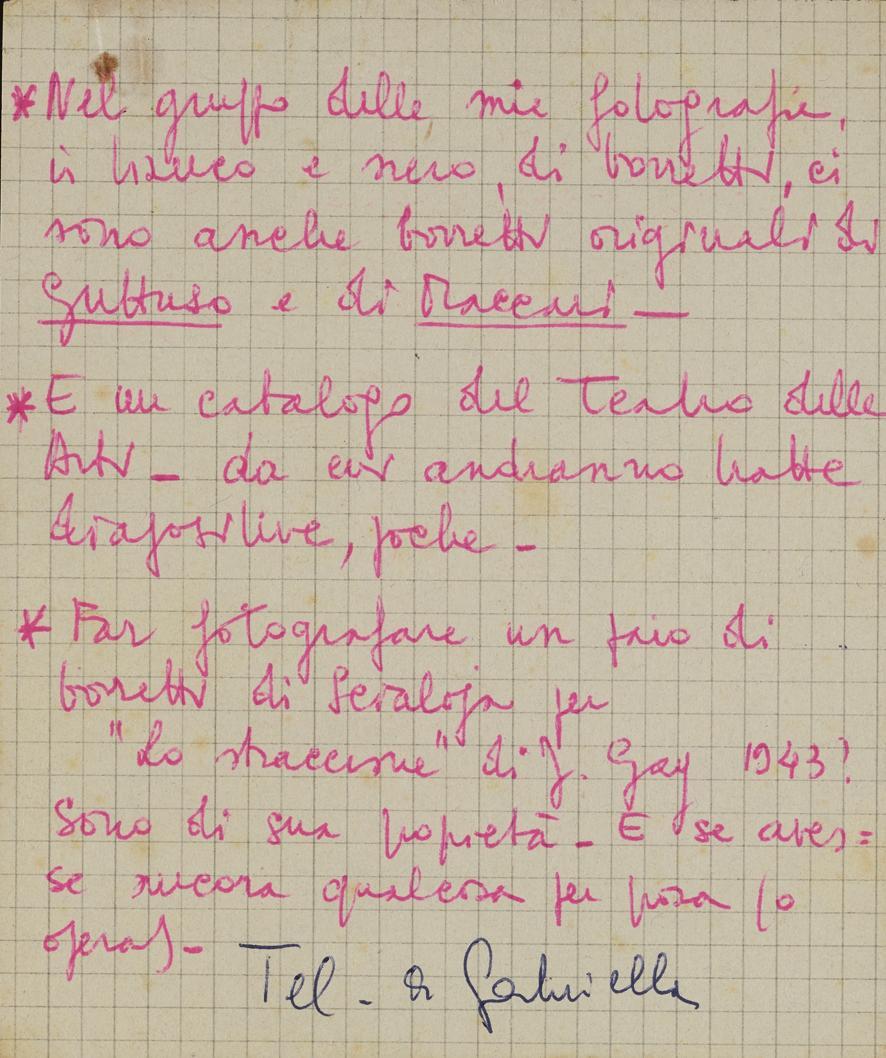 * Nel gruppo delle mie fotografie,
in bianco e nero, di bozzetti, ci
sono anche bozzetti originali di
Guttuso e di Maccari —
* E un catalogo del Teatro delle
Arti — da cui andranno tratte
diapositive, poche —
* Far fotografare un paio di
bozzetti di Scialoja per
"Lo straccione" di J. Gay 1943?
Sono di sua propietà — E se aves=
se ancora qualcosa per prosa (o
opera) —
Tel. a Gabriella